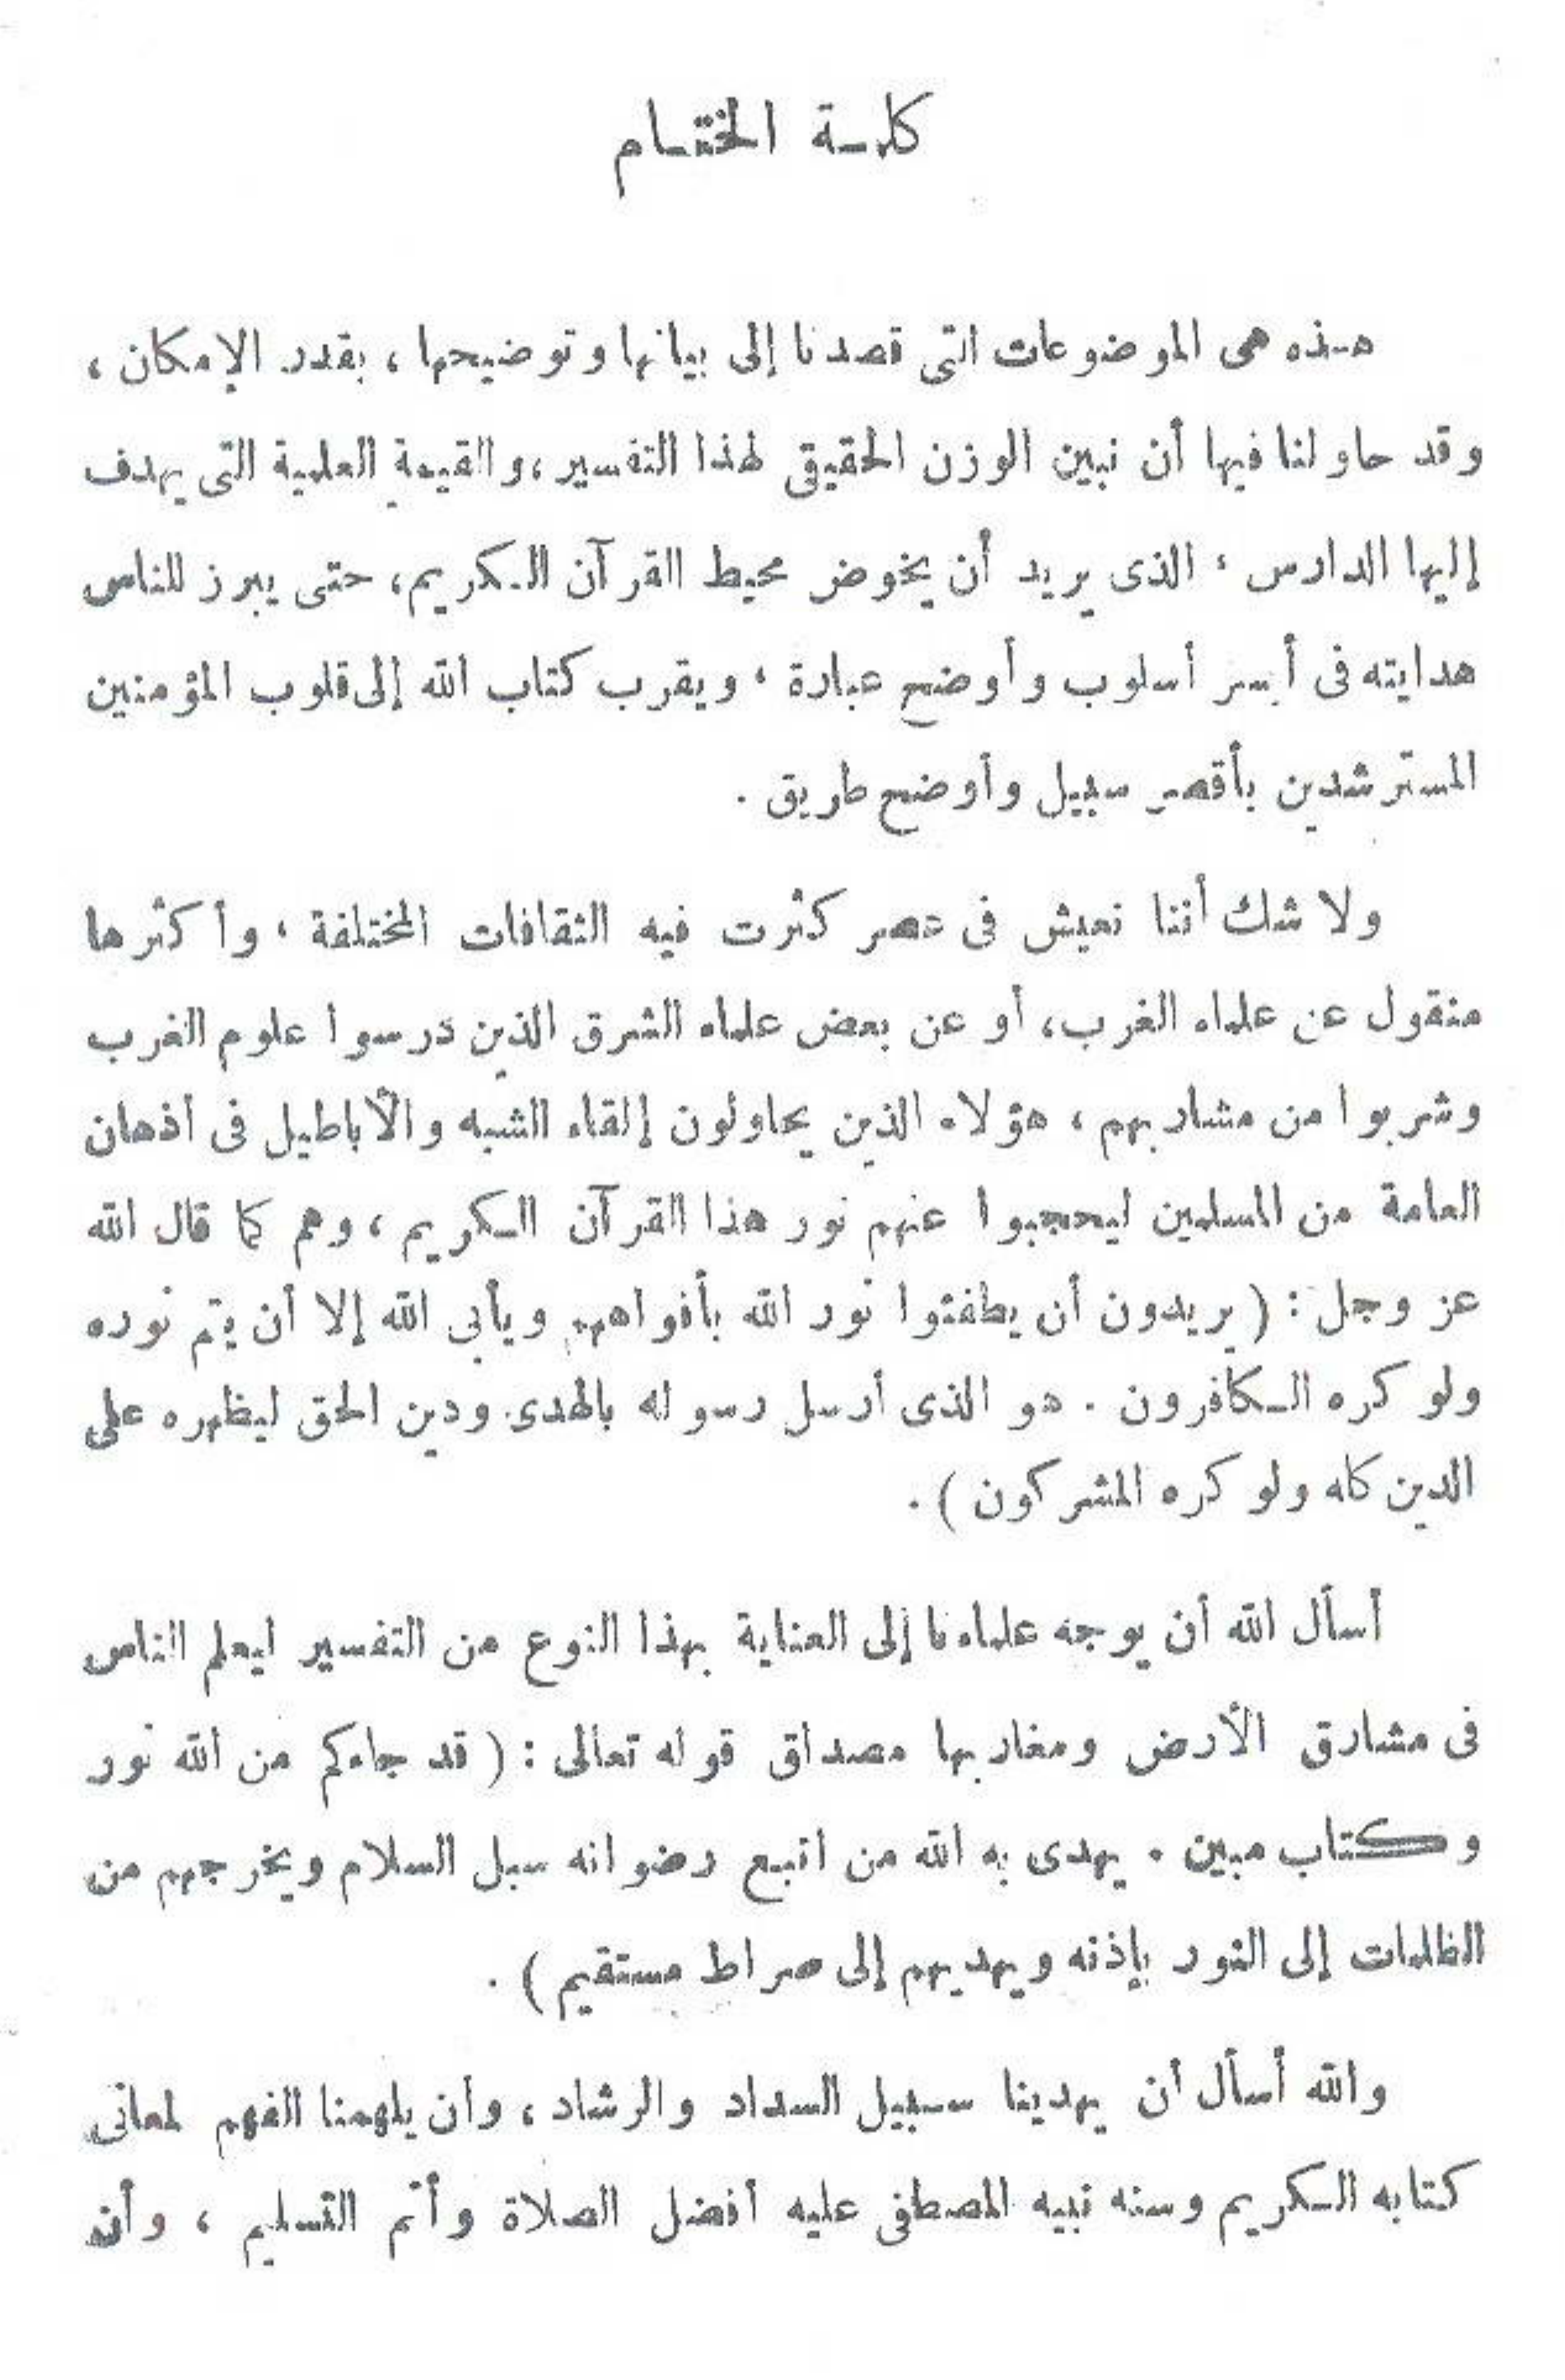 كلمة الختام
هذه هى الموضوعات التى قصدنا إلى بيانها وتوضيحها ، بقدر الإمكان ،
وقد حاولنا فيها أن نبين الوزن الحقيقى لهذا التفسير ، والقيمة العلمية التى يهدف
إليها الدارس ، الذى يريد أن يخوض محيط القرآن الكريم ، حتى يبرز للناس
هدايته فى أيسر أسلوب وأوضح عبارة ، ويقرب كتاب الله إلى قلوب المؤمنين
المسترشدين بأقصر سبيل وأوضح طريق .
ولا شك أننا نعيش فى عصر كثرت فيه الثقافات المختلفة ، وأكثرها
منقول عن علماء الغرب ، أو عن بعض علماء الشرق الذين درسوا علوم الغرب
وشربوا من مشاربهم ، هؤلاء الذين يحاولون إلقاء الشبه والأباطيل فى أذهان
العامة من المسلمين ليحجبوا عنهم نور هذا القرآن الكريم ، وهم كما قال الله
عز وجل : ( يريدون أن يطفئوا نور الله بأفواههم ويأبى الله إلا أن يتم نوره
ولو كره الكافرون . هو الذى أرسل رسوله بالهدى ودين الحق ليظهره على
الدين كله ولو كره المشركون ) .
أسأل الله أن يوجه علماءنا إلى العناية بهذا النوع من التفسير ليعلم الناس
فى مشارق الأرض ومغاربها مصداق قوله تعالى : ( قد جاءكم من الله نور
وكتاب مبين . يهدى به الله من اتبع رضوانه سبل السلام ويخرجهم من
الظلمات إلى النور بإذنه ويهديهم إلى صراط مستقيم ) .
والله أسأل أن يهدينا سبيل السداد والرشاد ، وأن يلهمنا الفهم لمعانى
كتابه الكريم وسنه نبيه المصطفى عليه أفضل الصلاة وأتم التسليم ، وأن